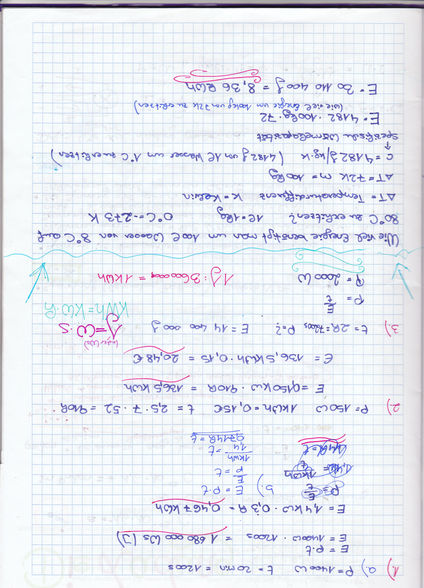 1) a) P=1400W t=20min = 1200s
E=P·t
E= 1400W · 1200s = 1 680 000 Ws (J)
E= 1,4 kW · 0,3 h = 0,467 kWh
b) E=P·t
E/P = t
1kWh/1,4 = t
0,714h = t
2) P=150W 1kWh=0,15€ t=2,5·7·52 = 910h
E= 0,150kW · 910h = 136,5 kWh
E= 136,5 kWh · 0,15 = 20,48 €
3) t=2h=7200s P=? E=14 400 000 J
P= E/t
P= 2000 W
1J=1W·S
kWh=kW·h
1J: 3600000 = 1kWh
Wie viel Energie benötigt man um 100l Wasser von 8°C auf
80°C zu erhitzen? 1l=1kg 0°C=-273 K
ΔT= Temperaturdifferenz K= Kelvin
ΔT=72K m=100kg
c=4182 J/kg·K (4182J um 1l Wasser um 1°C zu erhitzen)
↑
Spezifische Wärmekapazität
E=4182·100kg·72
(wie viel Energie um 100kg um 72K zu erhitzen)
E= 30 110 400 J = 8,36 kWh